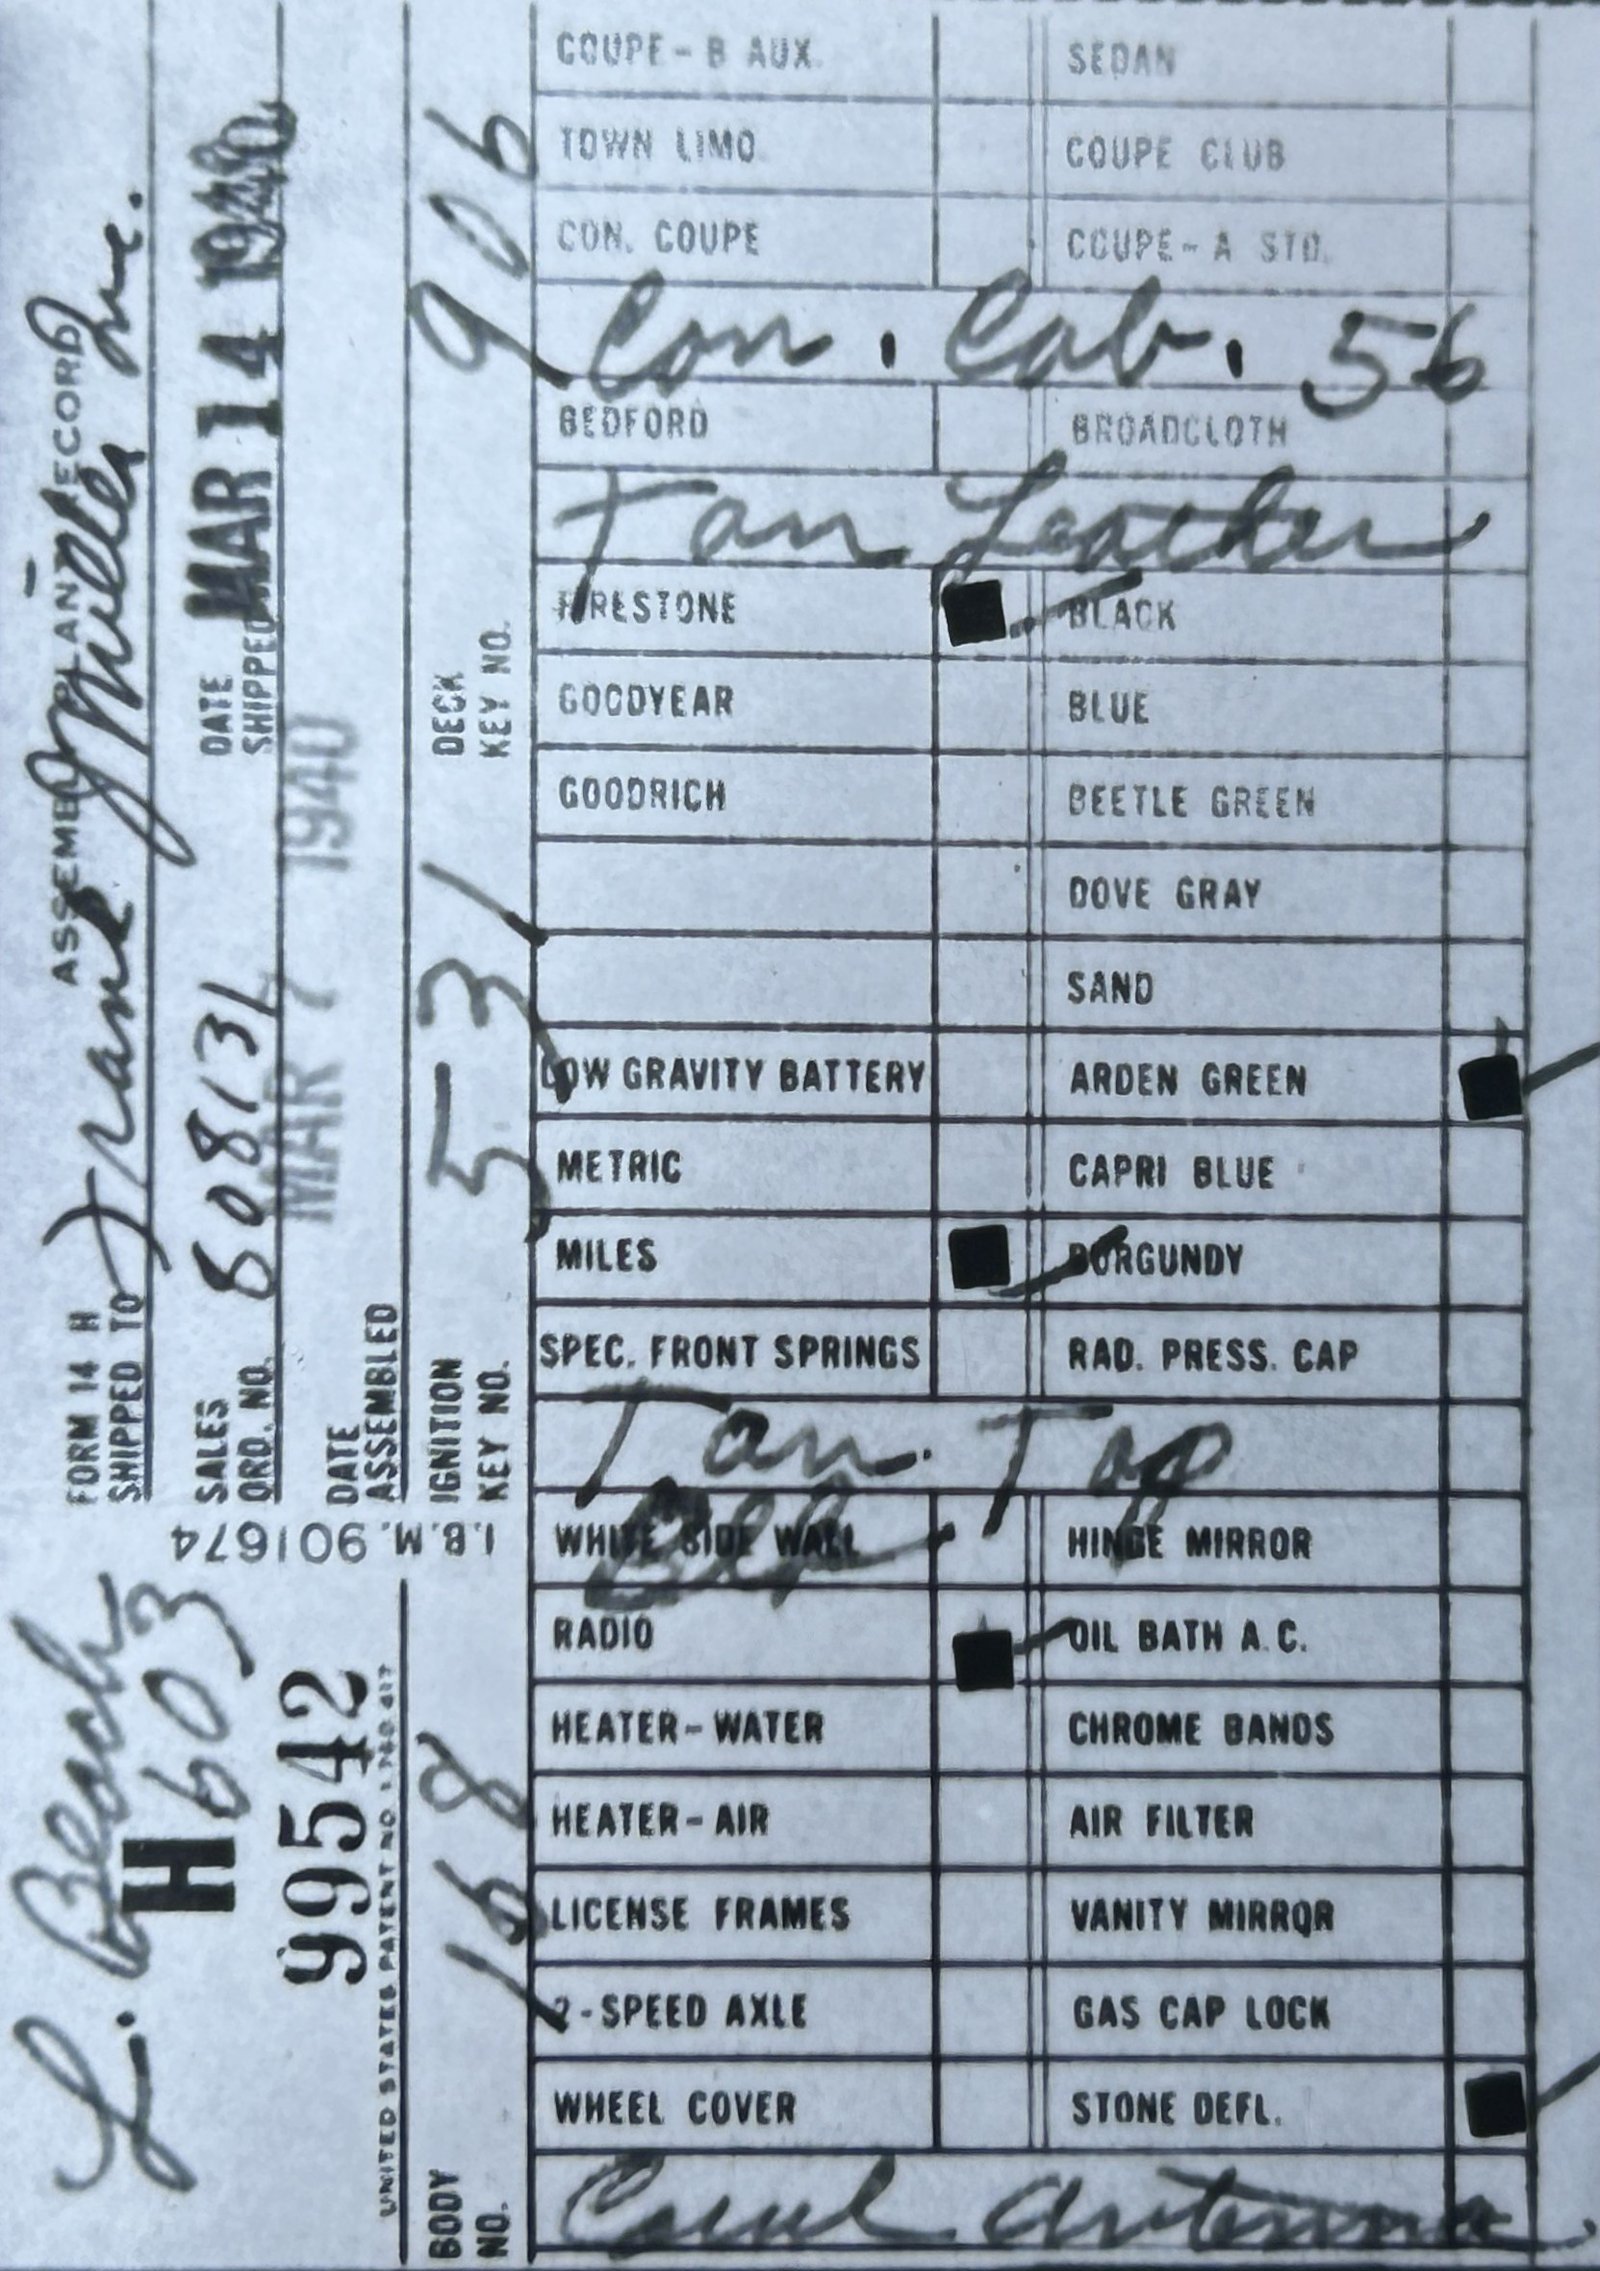 FORM 14 H
ASSEMBLY PLANT RECORD
SHIPPED TO Frank Miller Inc.
SALES ORD. NO. 508131
DATE SHIPPED MAR 14 1940
DATE ASSEMBLED MAR 7 1940
IGNITION KEY NO. 531
DECK KEY NO. 906
I.B.M. 901674
L. Beach
H 603
99542
UNITED STATES PATENT NO.
BODY NO. 168
COUPE-B AUX. SEDAN
TOWN LIMO COUPE CLUB
CON. COUPE COUPE-A STD.
Con. Cab. 56
BEDFORD BROADCLOTH
Tan Leather
FIRESTONE BLACK
GOODYEAR BLUE
GOODRICH BEETLE GREEN
DOVE GRAY
SAND
LOW GRAVITY BATTERY ARDEN GREEN
METRIC CAPRI BLUE
MILES BURGUNDY
SPEC. FRONT SPRINGS RAD. PRESS. CAP
Tan Top
WHITE SIDE WALL HINGE MIRROR
RADIO OIL BATH A.C.
HEATER-WATER CHROME BANDS
HEATER-AIR AIR FILTER
LICENSE FRAMES VANITY MIRROR
2-SPEED AXLE GAS CAP LOCK
WHEEL COVER STONE DEFL.
Cowl Antenna